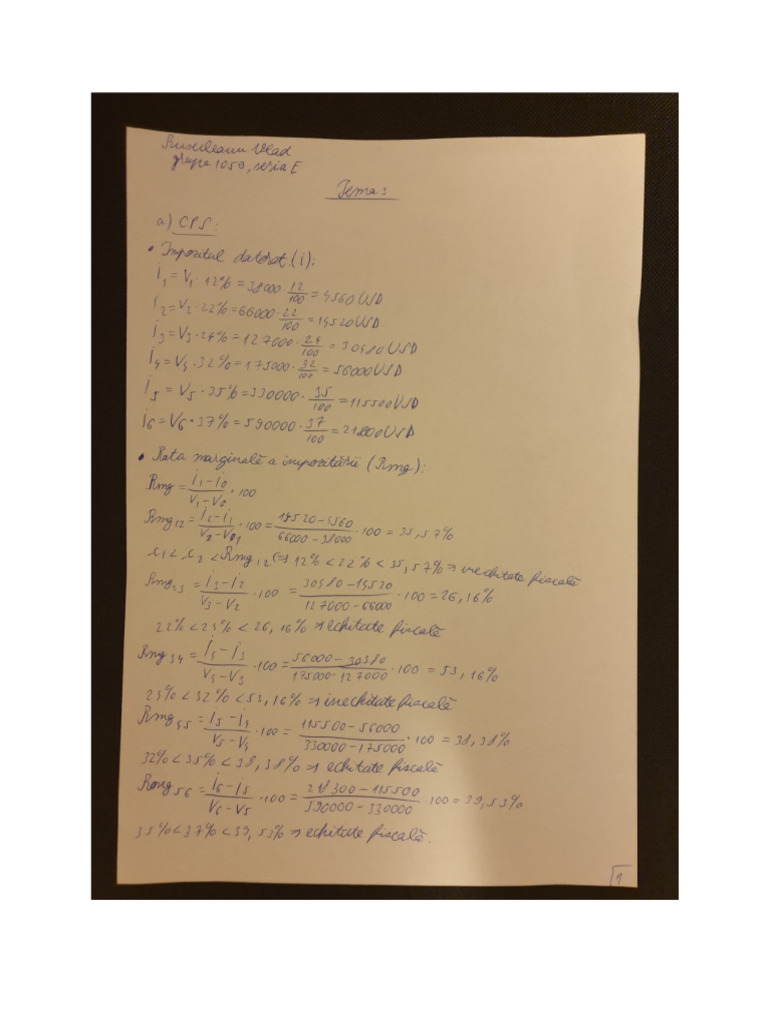 Vlad
grupa 1059, seria E
Tema:
a) CPS:
• Impozitul datorat (i):
i₁ = V₁ · 12% = 38000 · 12/100 = 4560 USD
i₂ = V₂ · 22% = 66000 · 22/100 = 14520 USD
i₃ = V₃ · 24% = 127000 · 24/100 = 30480 USD
i₄ = V₄ · 32% = 175000 · 32/100 = 56000 USD
i₅ = V₅ · 35% = 330000 · 35/100 = 115500 USD
i₆ = V₆ · 37% = 590000 · 37/100 = USD
• Rata marginală a impozitării (Rmg):
Rmg = i₁ - i₀ / V₁ - V₀ · 100
Rmg₁₂ = i₂ - i₁ / V₂ - V₁ · 100 = 14520 - 4560 / 66000 - 38000 · 100 = 35,57%
c₁ < c₂ < Rmg₁₂ (=) 12% < 22% < 35,57% => inechitate fiscală
Rmg₂₃ = i₃ - i₂ / V₃ - V₂ · 100 = 30480 - 14520 / 127000 - 66000 · 100 = 26,16%
22% < 24% < 26,16% => echitate fiscală
Rmg₃₄ = i₄ - i₃ / V₄ - V₃ · 100 = 56000 - 30480 / 175000 - 127000 · 100 = 53,16%
24% < 32% < 53,16% => inechitate fiscală
Rmg₄₅ = i₅ - i₄ / V₅ - V₄ · 100 = 115500 - 56000 / 330000 - 175000 · 100 = 38,38%
32% < 35% < 38,38% => echitate fiscală
Rmg₅₆ = i₆ - i₅ / V₆ - V₅ · 100 = 218300 - 115500 / 590000 - 330000 · 100 = 39,53%
35% < 37% < 39,53% => echitate fiscală.
1